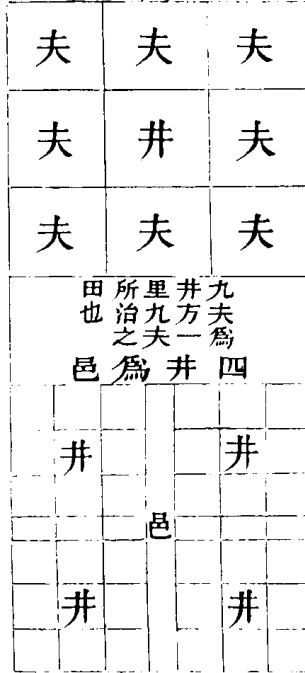 夫 夫 夫
夫 井 夫
夫 夫 夫
九夫爲
井方一
里九夫
所治之
田也
四井爲邑
井 井
邑
井 井